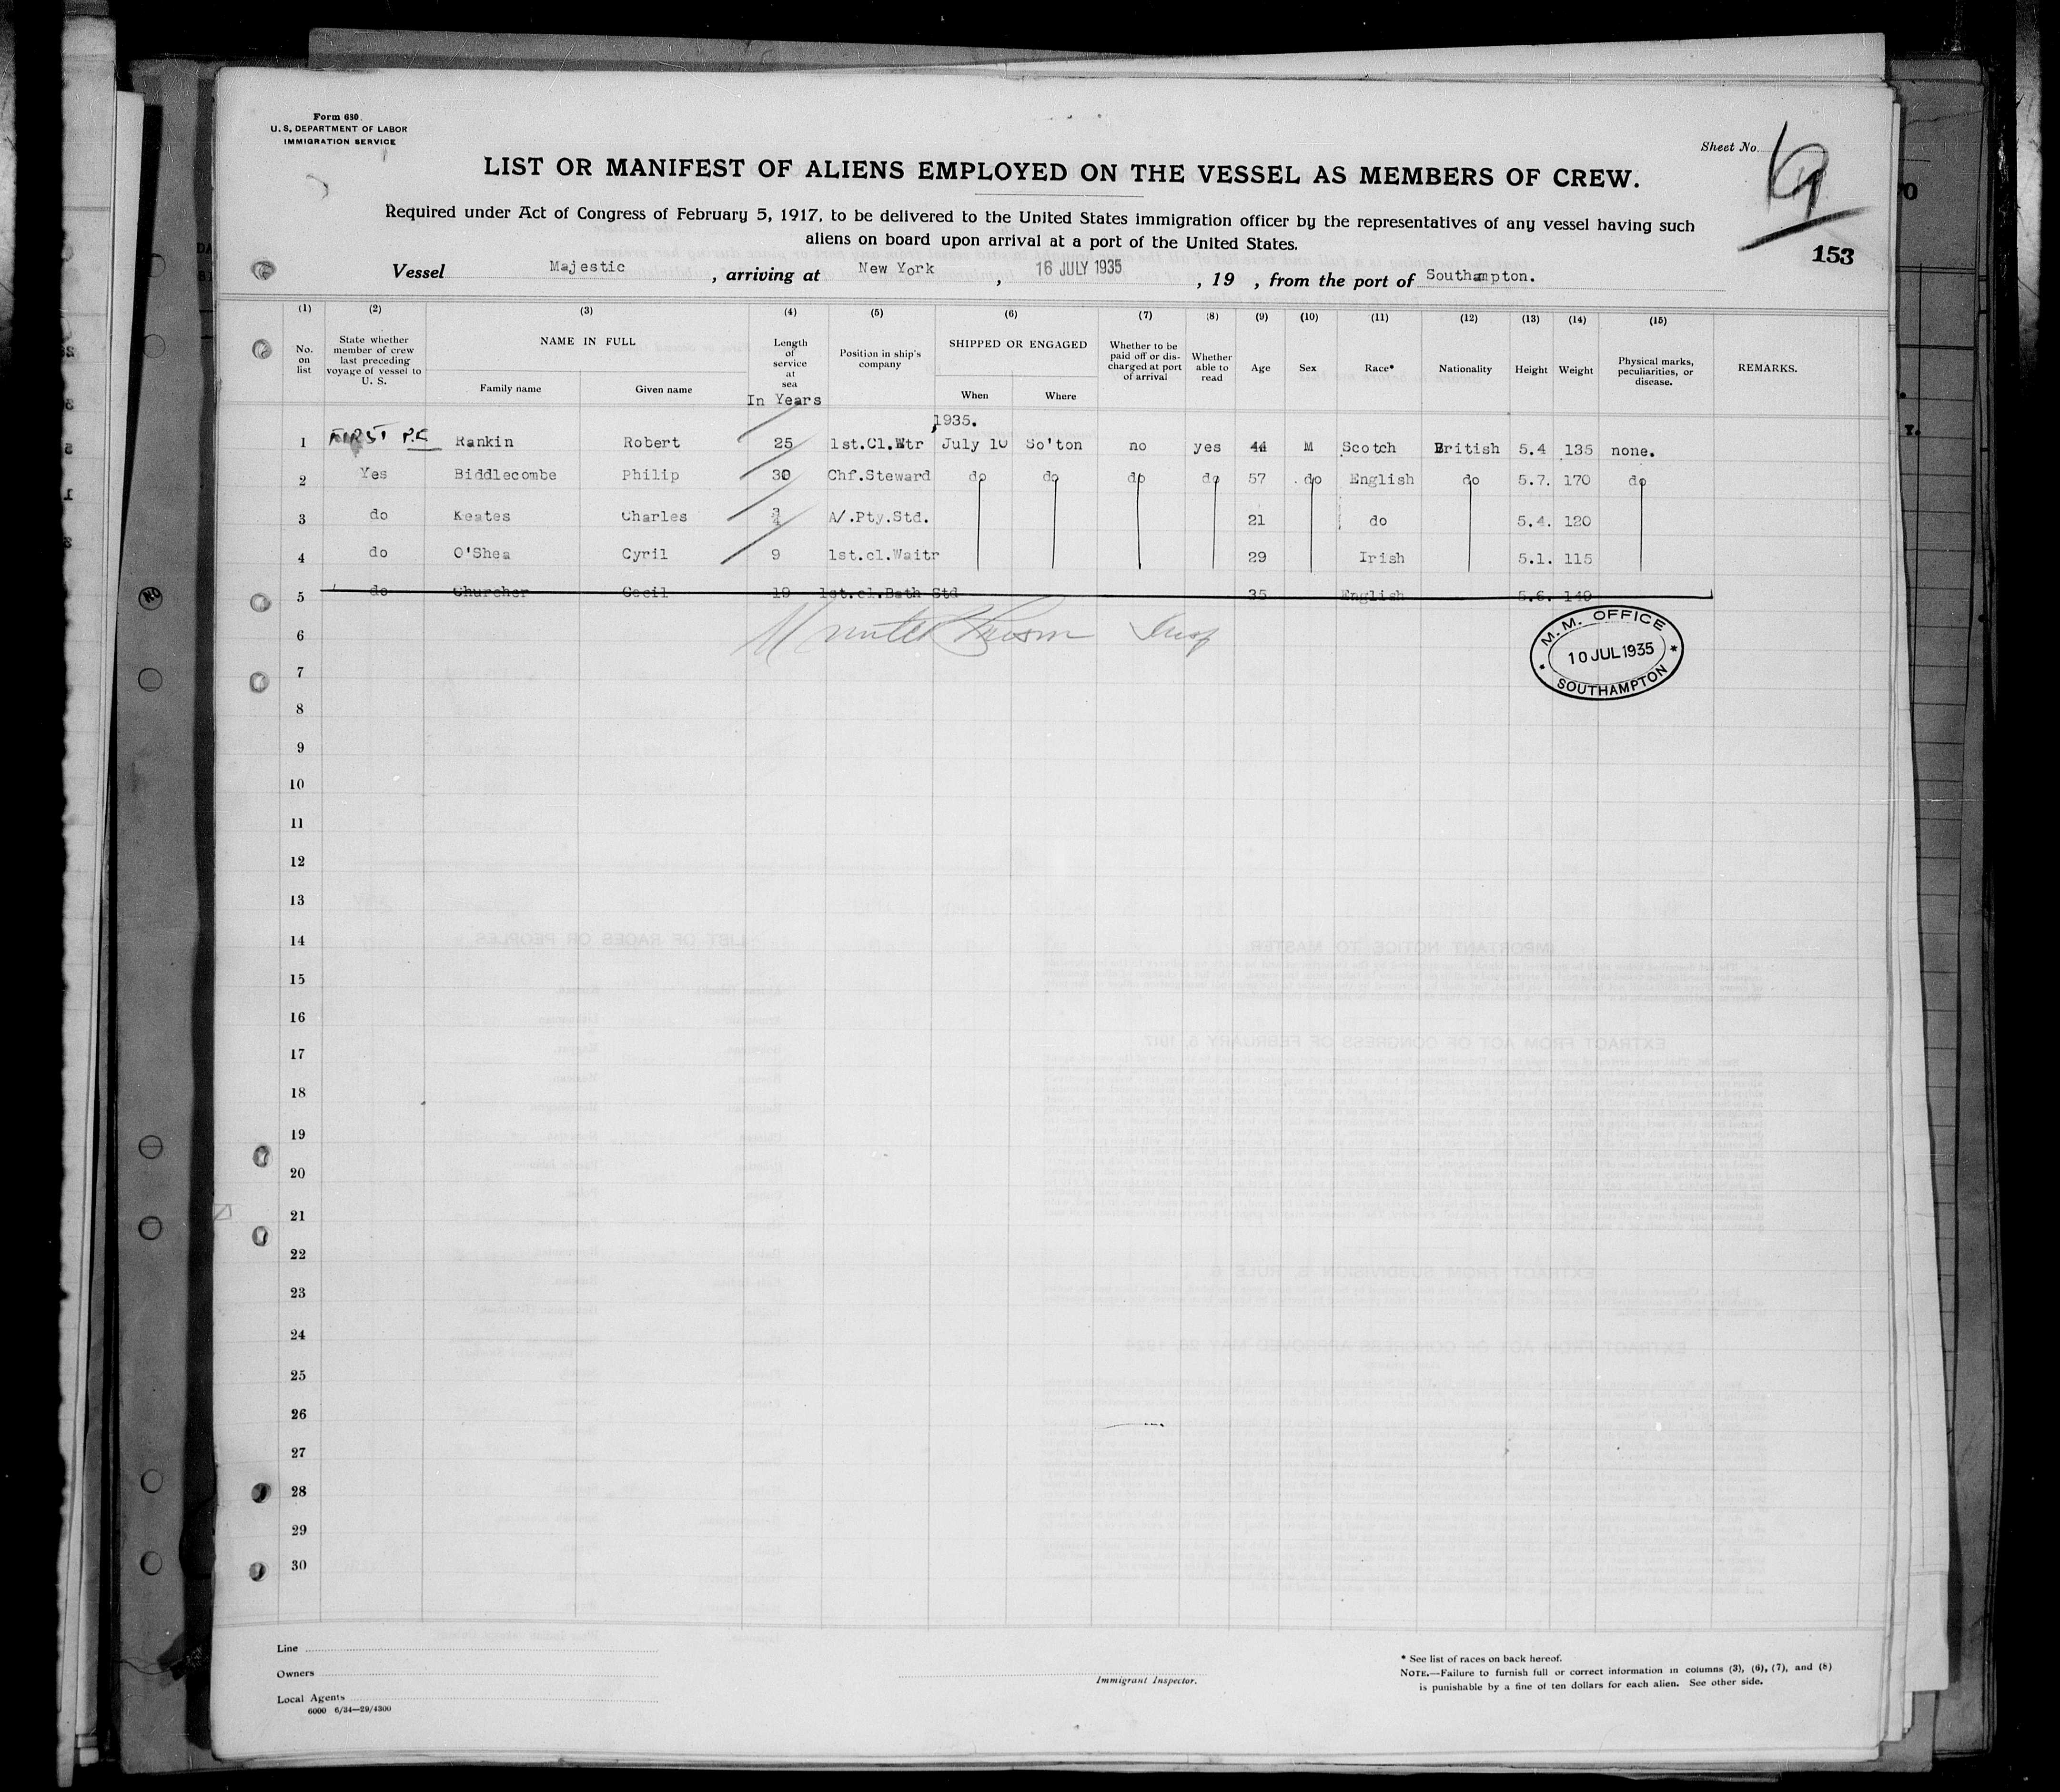 Form 680.
U. S. DEPARTMENT OF LABOR
IMMIGRATION SERVICE
Sheet No.
LIST OR MANIFEST OF ALIENS EMPLOYED ON THE VESSEL AS MEMBERS OF CREW.
Required under Act of Congress of February 5, 1917, to be delivered to the United States immigration officer by the representatives of any vessel having such
aliens on board upon arrival at a port of the United States.
153
Vessel Majestic, arriving at New York, 16 JULY 1935, 19 , from the port of Southampton.
(1) (2) (3) (4) (5) (6) (7) (8) (9) (10) (11) (12) (13) (14) (15)
No. on list
State whether member of crew last preceding voyage of vessel to U. S.
NAME IN FULL
Family name
Given name
Length of service at sea
In Years
Position in ship's company
SHIPPED OR ENGAGED
When
Where
Whether to be paid off or discharged at port of arrival
Whether able to read
Age
Sex
Race*
Nationality
Height
Weight
Physical marks, peculiarities, or disease.
REMARKS.
1935.
1 FIRST P.C Rankin Robert 25 1st.Cl.Wtr July 10 So'ton no yes 44 M Scotch British 5.4 135 none.
2 Yes Biddlecombe Philip 30 Chf.Steward do do do do 57 do English do 5.7. 170 do
3 do Keates Charles 3/4 A/.Pty.Std. 21 do 5.4. 120
4 do O'Shea Cyril 9 1st.cl.Waitr 29 Irish 5.1. 115
5 do Churcher Cecil 19 1st.cl.Bath Std 35 English 5.6. 140
6
M.M. OFFICE
10 JUL 1935
SOUTHAMPTON
7
8
9
10
11
12
13
14
15
16
17
18
19
20
21
22
23
24
25
26
27
28
29
30
Line
Owners
Local Agents
6000 6/34—29/4300
Immigrant Inspector.
* See list of races on back hereof.
NOTE.—Failure to furnish full or correct information in columns (3), (6), (7), and (8)
is punishable by a fine of ten dollars for each alien. See other side.